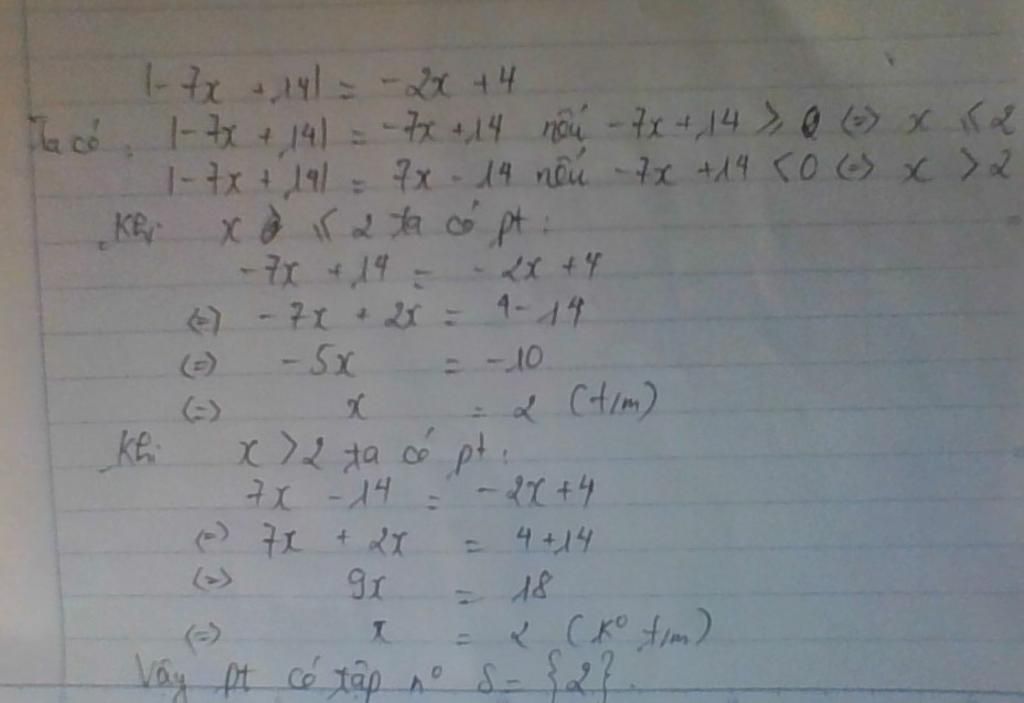 |-7x + 14| = -2x + 4
Ta có: |-7x + 14| = -7x + 14 nếu -7x + 14 ≥ 0 (=) x ≤ 2
|-7x + 14| = 7x - 14 nếu -7x + 14 < 0 (=) x > 2
Khi x ≤ 2 ta có pt:
-7x + 14 = -2x + 4
(=) -7x + 2x = 4 - 14
(=) -5x = -10
(=) x = 2 (t/m)
Khi x > 2 ta có pt:
7x - 14 = -2x + 4
(=) 7x + 2x = 4 + 14
(=) 9x = 18
(=) x = 2 (k° t/m)
Vậy pt có tập n° S = {2}.